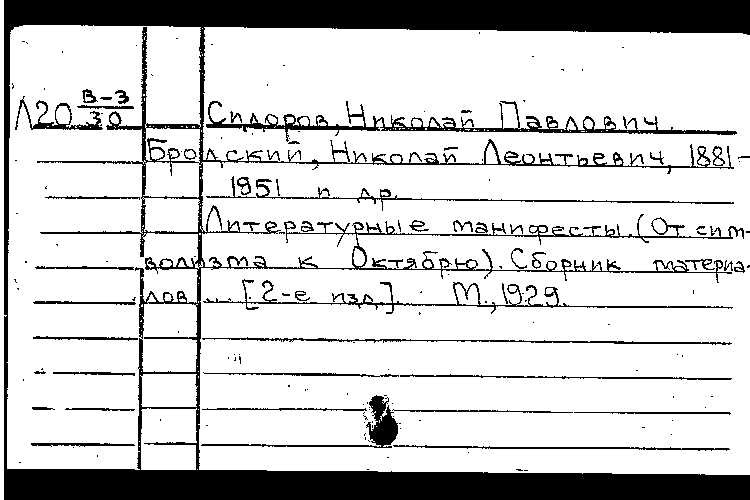 Л20 В-3/30 Сидоров, Николай Павлович.
Бродский, Николай Леонтьевич, 1881-
1951 и др.
Литературные манифесты. (От сим-
волизма к Октябрю). Сборник материа-
лов ... [2-е изд.]. М., 1929.